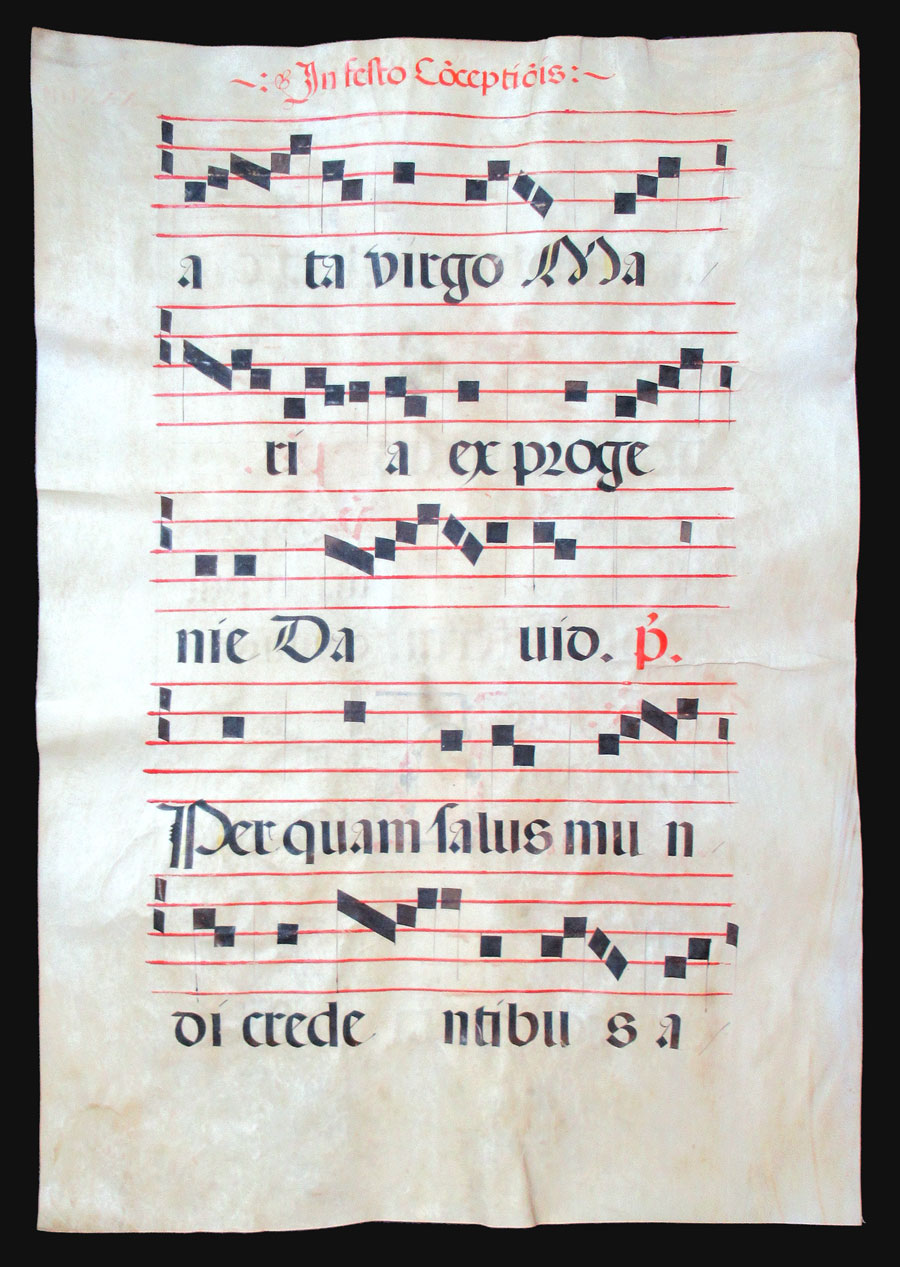 ~:In festo Cõceptiõis:~
a ta virgo Ma
ri a ex proge
nie Da uid. p̃.
Per quam salus mu n
di crede ntibu s a